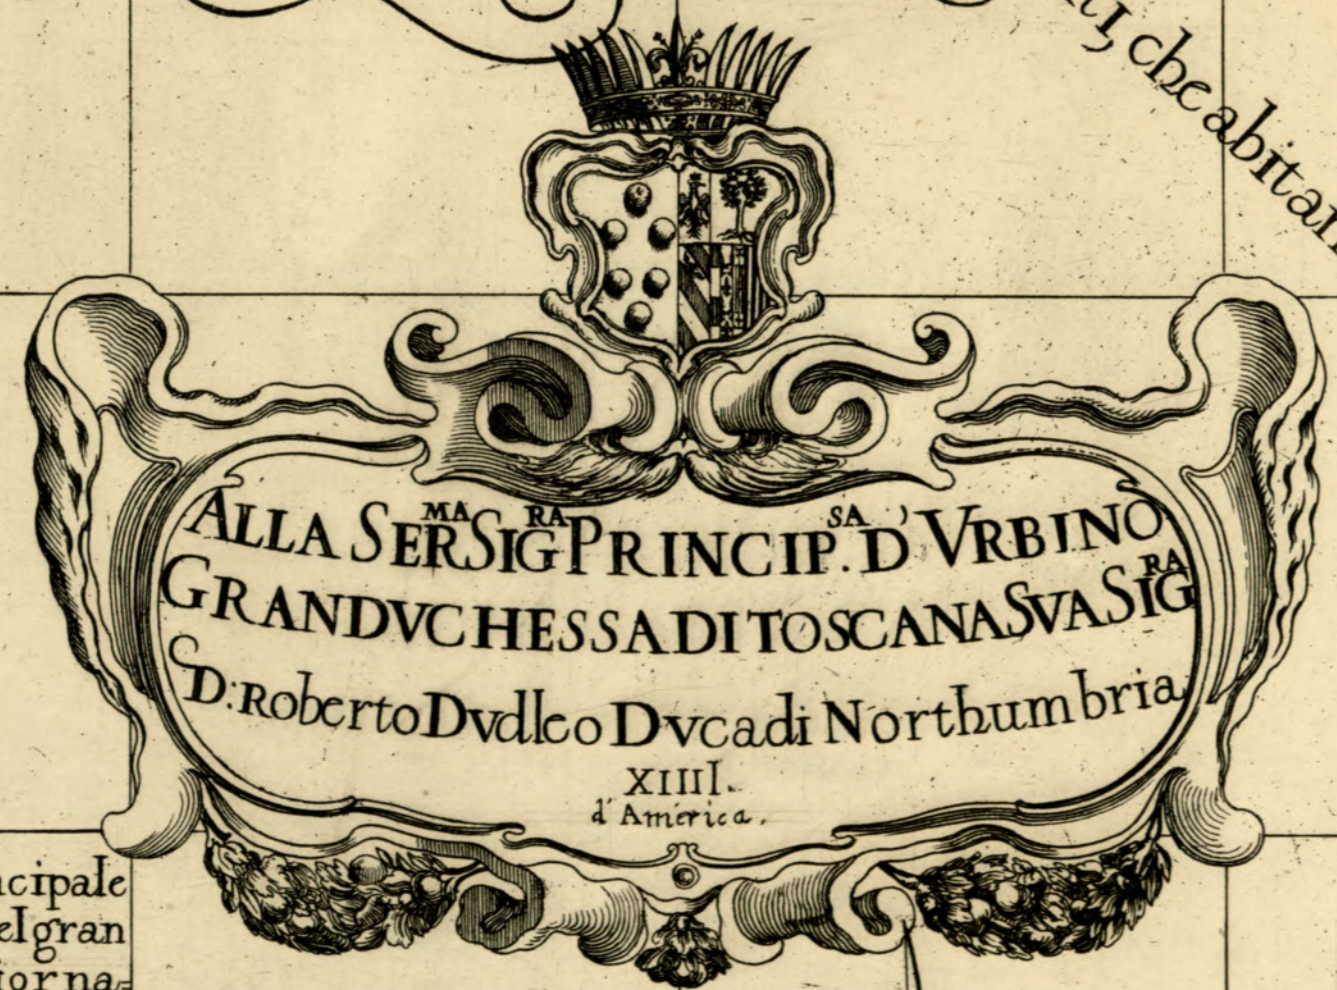 ni, che abitan
ALLA SER.MA SIG.RA PRINCIP.SA D'VRBINO
GRANDVCHESSA DI TOSCANA SVA SIG.RA
D: Roberto Dvdleo Dvca di Northumbria
XIIII.
d'America.
ncipale
el gran
iorna-